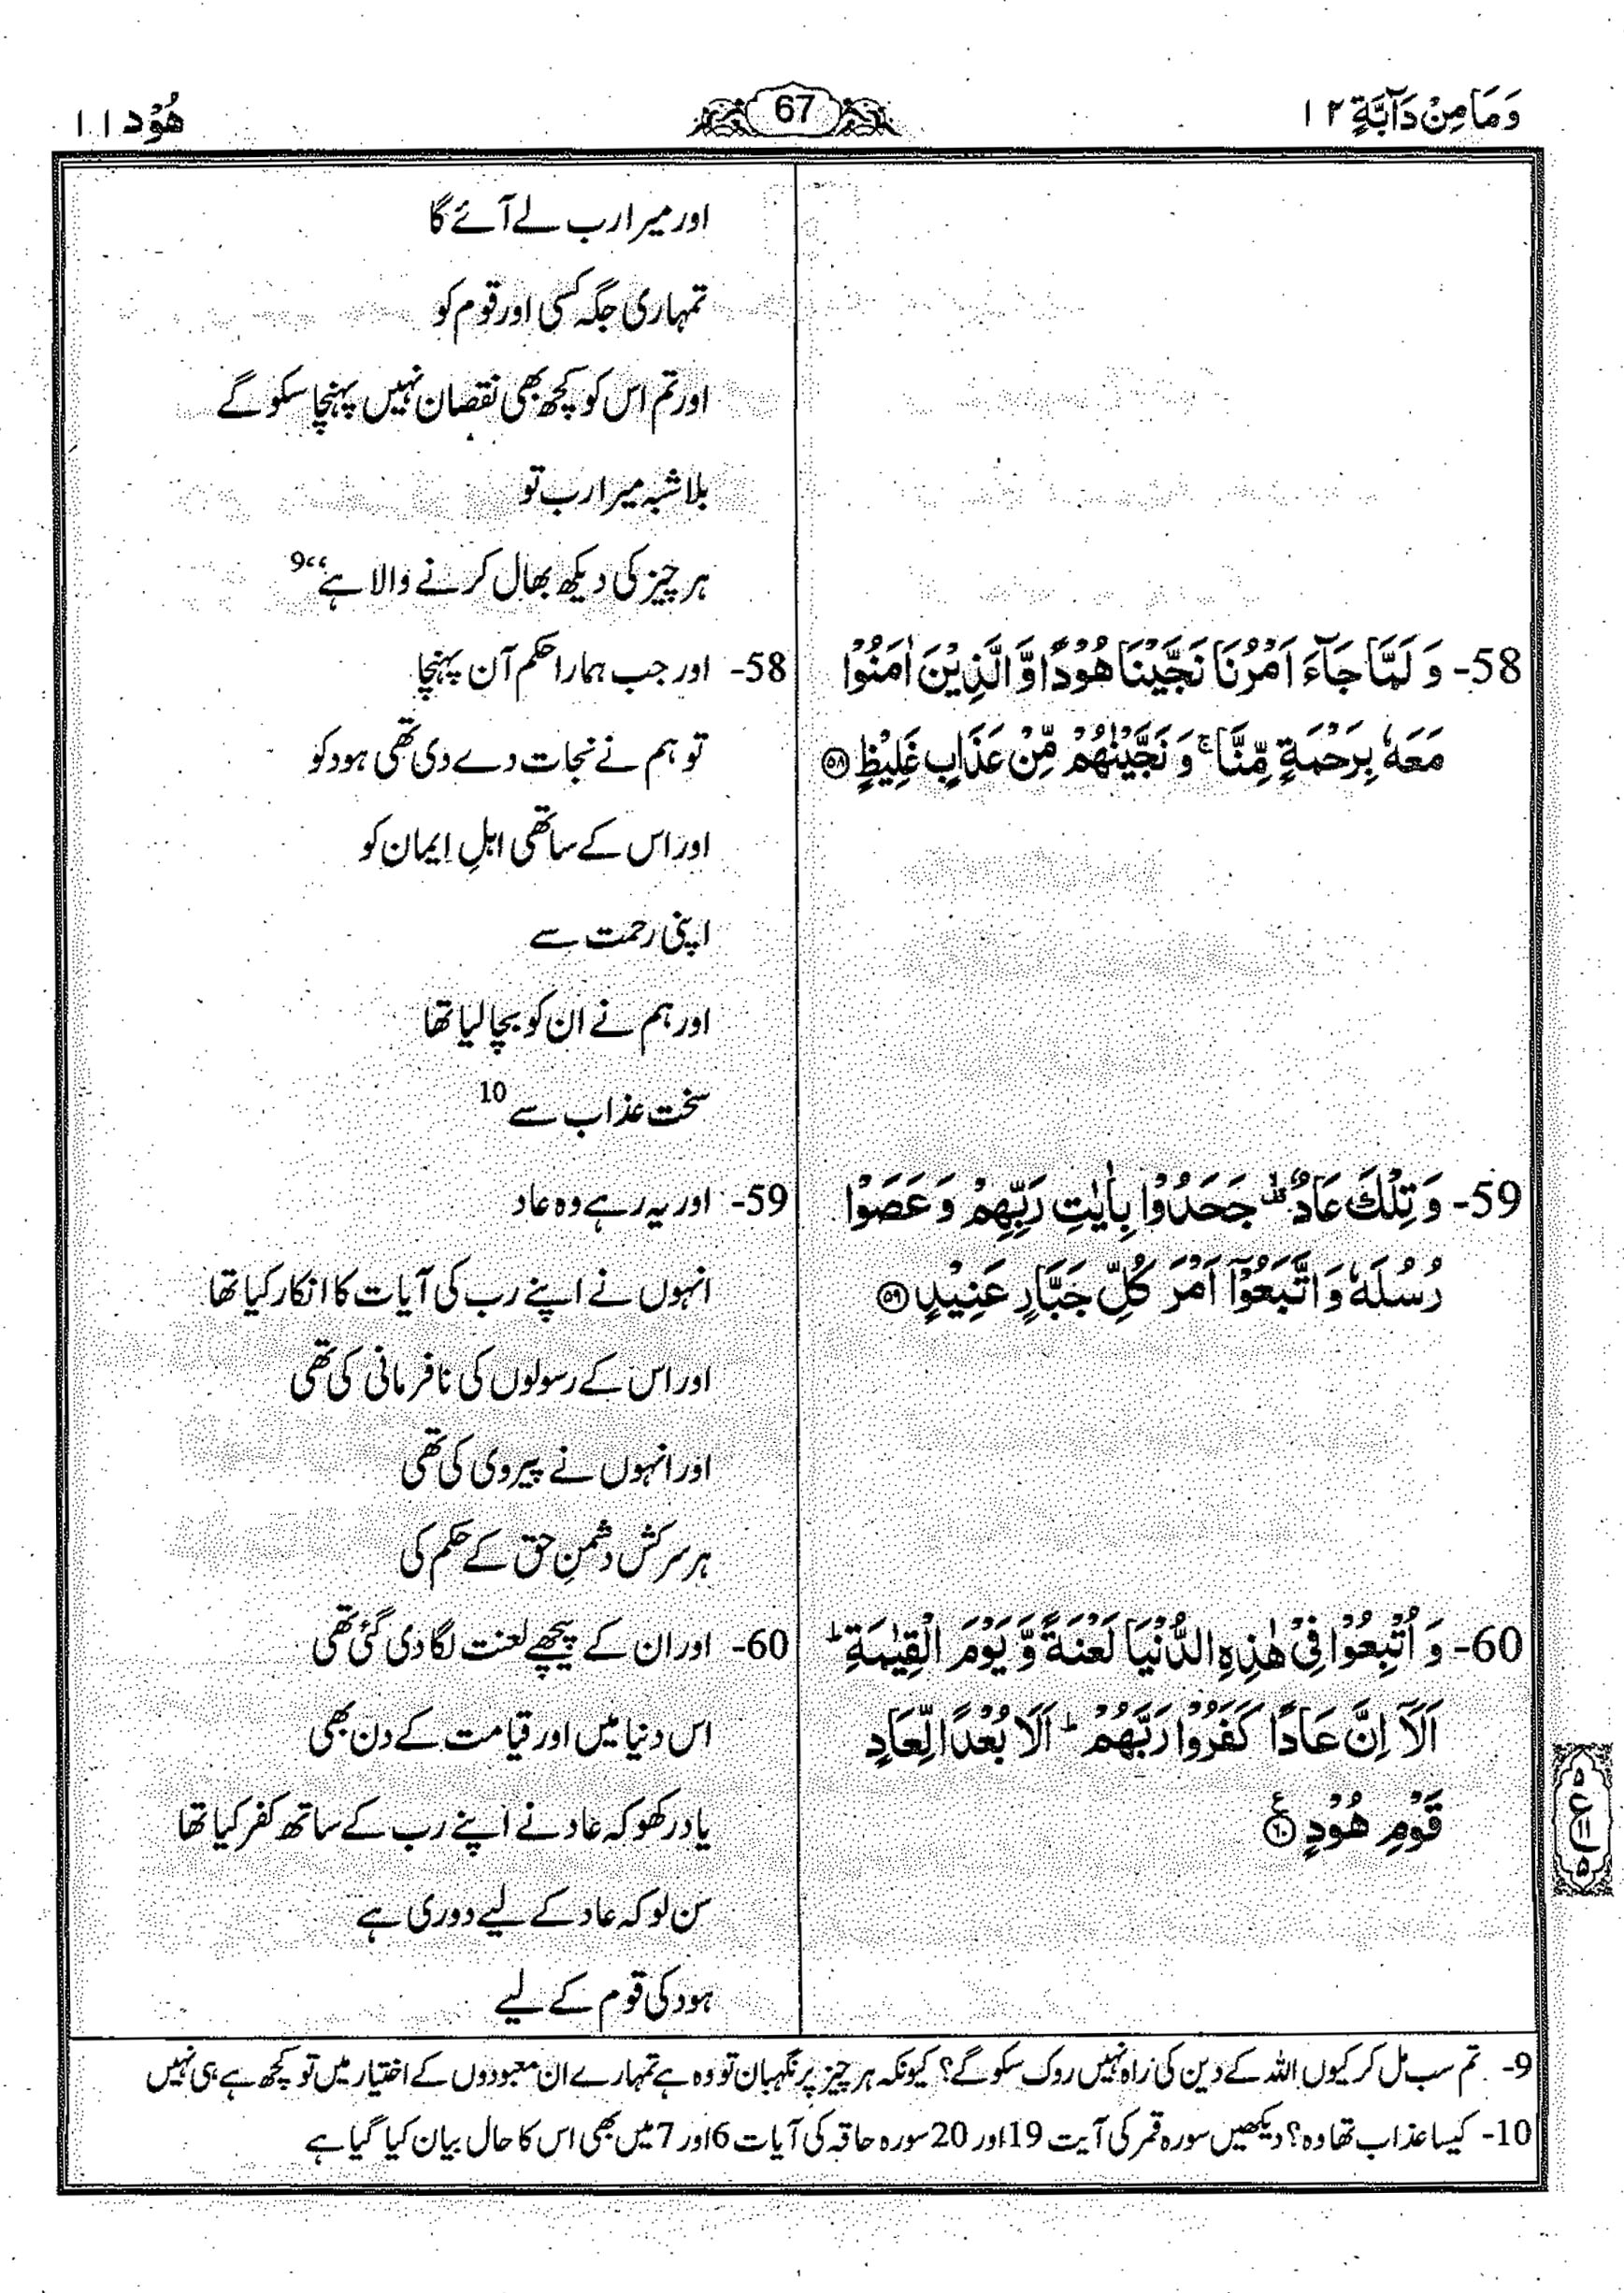 وَمَا مِنْ دَآبَّةٍ ۱۲
67
هُوْد ۱۱
اور میرا رب لے آئے گا
تمہاری جگہ کسی اور قوم کو
اور تم اس کو کچھ بھی نقصان نہیں پہنچا سکو گے
بلاشبہ میرا رب تو
ہر چیز کی دیکھ بھال کرنے والا ہے“9
58- وَ لَمَّا جَآءَ اَمْرُنَا نَجَّيْنَا هُوْدًا وَّ الَّذِيْنَ اٰمَنُوْا
مَعَهٗ بِرَحْمَةٍ مِّنَّا ۚ وَ نَجَّيْنٰهُمْ مِّنْ عَذَابٍ غَلِيْظٍ ۵۸
58- اور جب ہمارا حکم آن پہنچا
تو ہم نے نجات دے دی تھی ہود کو
اور اس کے ساتھی اہلِ ایمان کو
اپنی رحمت سے
اور ہم نے ان کو بچا لیا تھا
سخت عذاب سے 10
59- وَ تِلْكَ عَادٌ ۙ جَحَدُوْا بِاٰيٰتِ رَبِّهِمْ وَ عَصَوْا
رُسُلَهٗ وَ اتَّبَعُوْۤا اَمْرَ كُلِّ جَبَّارٍ عَنِيْدٍ ۵۹
59- اور یہ رہے وہ عاد
انہوں نے اپنے رب کی آیات کا انکار کیا تھا
اور اس کے رسولوں کی نافرمانی کی تھی
اور انہوں نے پیروی کی تھی
ہر سرکش دشمنِ حق کے حکم کی
60- وَ اُتْبِعُوْا فِيْ هٰذِهِ الدُّنْيَا لَعْنَةً وَّ يَوْمَ الْقِيٰمَةِ ؕ
اَلَاۤ اِنَّ عَادًا كَفَرُوْا رَبَّهُمْ ؕ اَلَا بُعْدًا لِّعَادٍ
قَوْمِ هُوْدٍ ۶۰ ع
60- اور ان کے پیچھے لعنت لگا دی گئی تھی
اس دنیا میں اور قیامت کے دن بھی
یاد رکھو کہ عاد نے اپنے رب کے ساتھ کفر کیا تھا
سن لو کہ عاد کے لیے دوری ہے
ہود کی قوم کے لیے
۵
ع
۱۱
۵
9- تم سب مل کر کیوں اللہ کے دین کی راہ نہیں روک سکو گے؟ کیونکہ ہر چیز پر نگہبان تو وہ ہے تمہارے ان معبودوں کے اختیار میں تو کچھ ہے ہی نہیں
10- کیسا عذاب تھا وہ؟ دیکھیں سورہ قمر کی آیت 19 اور 20 سورہ حاقہ کی آیات 6 اور 7 میں بھی اس کا حال بیان کیا گیا ہے